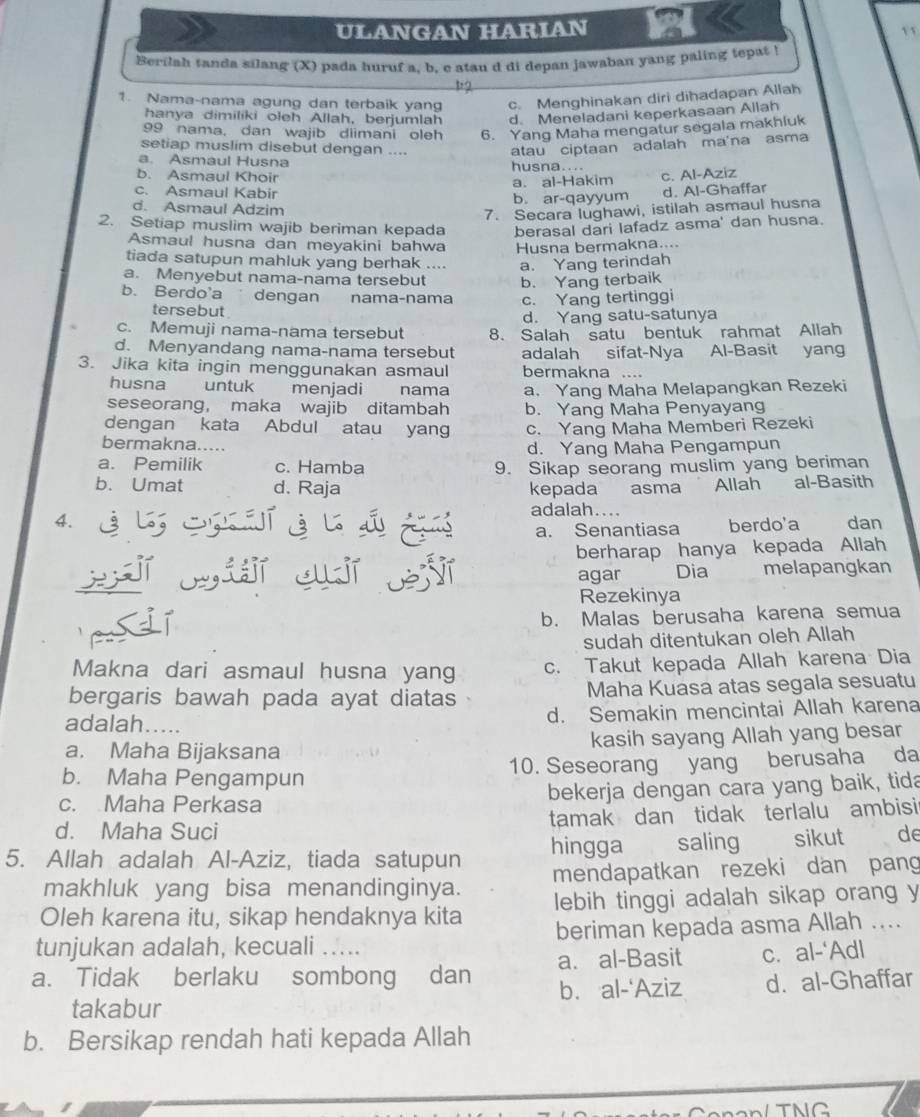 ULANGAN HARIAN
11
Berilah tanda silang (X) pada huruf a, b, c atau d di depan jawaban yang paling tepat !
1. Nama-nama agung dan terbaik yang
hanya dimiliki oleh Allah, berjumlah
99 nama, dan wajib diimani oleh
setiap muslim disebut dengan ....
a. Asmaul Husna
b. Asmaul Khoir
c. Asmaul Kabir
d. Asmaul Adzim
2. Setiap muslim wajib beriman kepada
Asmaul husna dan meyakini bahwa
tiada satupun mahluk yang berhak ....
a. Menyebut nama-nama tersebut
b. Berdo'a dengan nama-nama
tersebut
c. Memuji nama-nama tersebut
d. Menyandang nama-nama tersebut
3. Jika kita ingin menggunakan asmaul
husna untuk menjadi nama
seseorang, maka wajib ditambah
dengan kata Abdul atau yang
bermakna.....
a. Pemilik c. Hamba
b. Umat d. Raja
4. يُسَبِّحُ لِلّٰهِ مَا فِي السَّمٰوٰتِ وَمَا فِي
الْأَرْضِ الْمَلِكِ الْقُدُّوْسِ الْعَزِيْزِ
الْحَكِيْمِ
Makna dari asmaul husna yang
bergaris bawah pada ayat diatas
adalah.....
a. Maha Bijaksana
b. Maha Pengampun
c. Maha Perkasa
d. Maha Suci
5. Allah adalah Al-Aziz, tiada satupun
makhluk yang bisa menandinginya.
Oleh karena itu, sikap hendaknya kita
tunjukan adalah, kecuali .....
a. Tidak berlaku sombong dan
takabur
b. Bersikap rendah hati kepada Allah
c. Menghinakan diri dihadapan Allah
d. Meneladani keperkasaan Allah
6. Yang Maha mengatur segala makhluk
atau ciptaan adalah ma'na asma
husna....
a. al-Hakim c. Al-Aziz
b. ar-qayyum d. Al-Ghaffar
7. Secara lughawi, istilah asmaul husna
berasal dari lafadz asma' dan husna.
Husna bermakna....
a. Yang terindah
b. Yang terbaik
c. Yang tertinggi
d. Yang satu-satunya
8. Salah satu bentuk rahmat Allah
adalah sifat-Nya Al-Basit yang
bermakna ....
a. Yang Maha Melapangkan Rezeki
b. Yang Maha Penyayang
c. Yang Maha Memberi Rezeki
d. Yang Maha Pengampun
9. Sikap seorang muslim yang beriman
kepada asma Allah al-Basith
adalah....
a. Senantiasa berdo'a dan
berharap hanya kepada Allah
agar Dia melapangkan
Rezekinya
b. Malas berusaha karena semua
sudah ditentukan oleh Allah
c. Takut kepada Allah karena Dia
Maha Kuasa atas segala sesuatu
d. Semakin mencintai Allah karena
kasih sayang Allah yang besar
10. Seseorang yang berusaha da
bekerja dengan cara yang baik, tida
tamak dan tidak terlalu ambisi
hingga saling sikut de
mendapatkan rezeki dan pang
lebih tinggi adalah sikap orang y
beriman kepada asma Allah ....
a. al-Basit c. al-'Adl
b. al-'Aziz d. al-Ghaffar